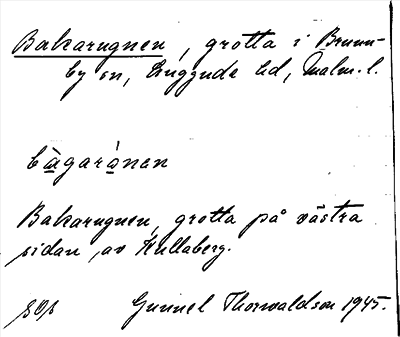 Bakarugnen, grotta i Brunn-
by sn, Luggude hd, Malm. l.
bàgarònen
Bakarugnen, grotta på västra
sidan av Kullaberg.
Gunnel Thorwaldson 1945.